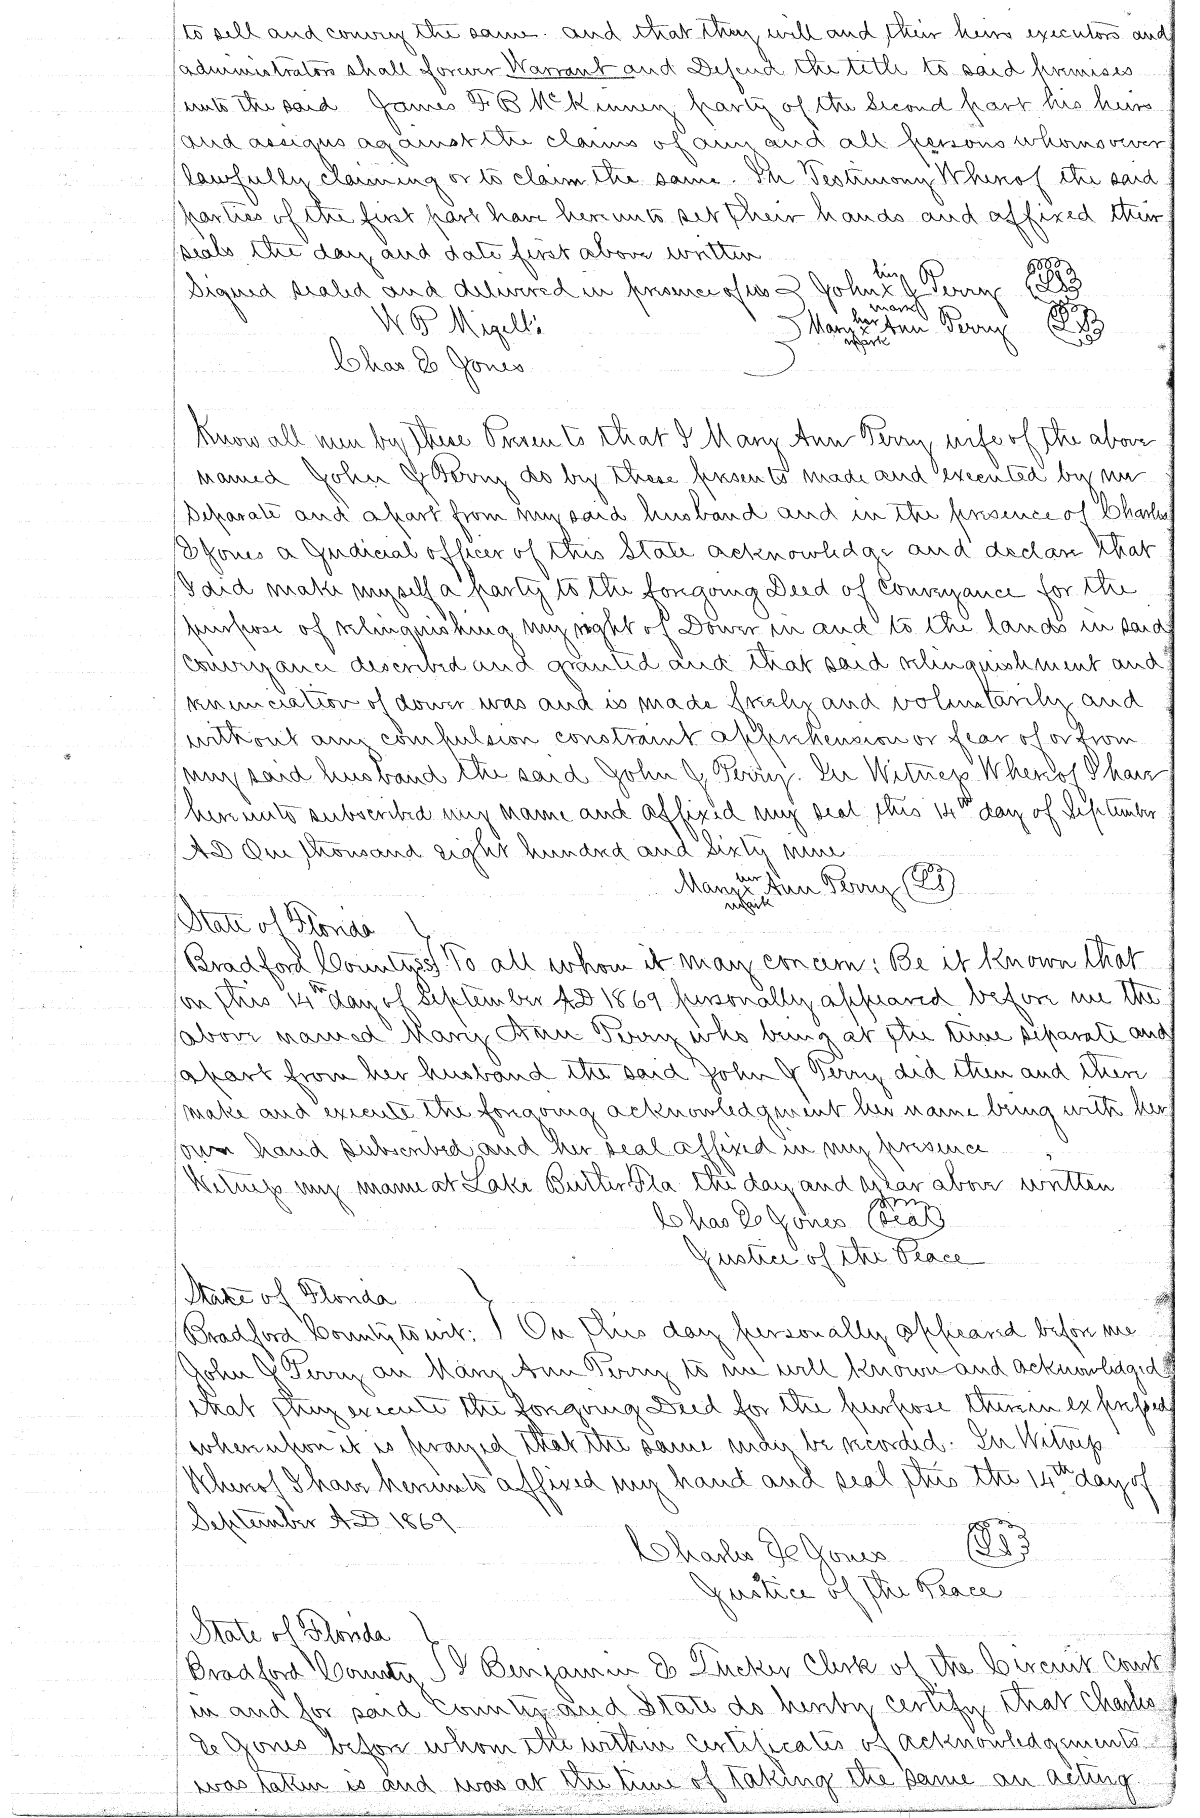 to sell and convey the same. and that they will and their heirs executors and
administrators shall forever Warrant and Defend the title to said premises
unto the said James F B McKinney party of the Second part his heirs
and assigns against the claims of any and all persons whomsoever
lawfully claiming or to claim the same. In Testimony Whereof the said
parties of the first part have hereunto set their hands and affixed their
seals the day and date first above written
Signed sealed and delivered in presence of us John his x mark J Perry LS
W P Migells Mary her x mark Ann Perry LS
Chas E Jones
Know all men by these Presents that I Mary Ann Perry wife of the above
named John J Perry do by these presents made and executed by me
Separate and apart from my said husband and in the presence of Charles
E Jones a Judicial officer of this State acknowledge and declare that
I did make myself a party to the foregoing Deed of Conveyance for the
purpose of relinquishing my right of Dower in and to the lands in said
Conveyance described and granted and that said relinquishment and
renunciation of dower was and is made freely and voluntarily and
without any compulsion constraint apprehension or fear of or from
my said husband the said John J Perry. In Witness Whereof I have
hereunto subscribed my name and affixed my seal this 14th day of September
AD One thousand eight hundred and Sixty nine
Mary her x mark Ann Perry LS
State of Florida
Bradford County ss To all whom it may concern: Be it known that
on this 14th day of September AD 1869 personally appeared before me the
above named Mary Ann Perry who being at the time separate and
apart from her husband the said John J Perry did then and there
make and execute the foregoing acknowledgment her name being with her
own hand subscribed and her seal affixed in my presence
Witness my name at Lake Butler Fla the day and year above written
Chas E Jones (Seal)
Justice of the Peace
State of Florida
Bradford County to wit: On this day personally appeared before me
John J Perry an Mary Ann Perry to me well known and acknowledged
that they execute the foregoing Deed for the purpose therein expressed
whereupon it is prayed that the same may be recorded. In Witness
Whereof I have hereunto affixed my hand and seal this the 14th day of
September AD 1869
Charles E Jones LS
Justice of the Peace
State of Florida
Bradford County I Benjamin E Tucker Clerk of the Circuit Court
in and for said County and State do hereby certify that Charles
E Jones before whom the within certificates of acknowledgements
was taken is and was at the time of taking the same an acting